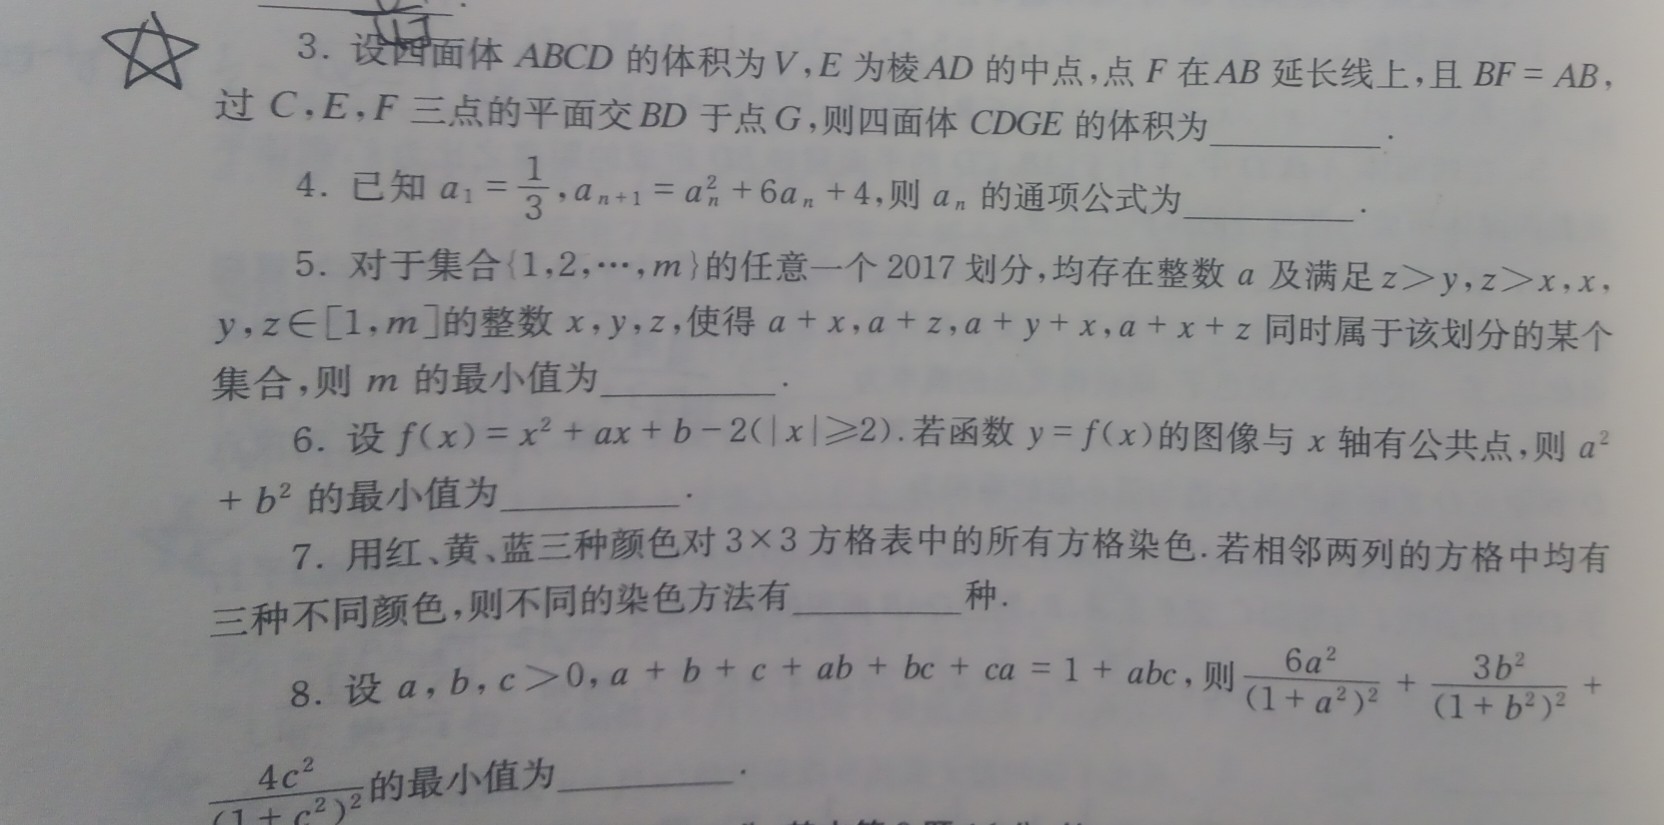 3. 设四面体 ABCD 的体积为 V, E 为棱 AD 的中点,点 F 在 AB 延长线上,且 BF = AB,
过 C, E, F 三点的平面交 BD 于点 G,则四面体 CDGE 的体积为________.
4. 已知 a₁ = 1/3, aₙ₊₁ = aₙ² + 6aₙ + 4,则 aₙ 的通项公式为________.
5. 对于集合{1,2,⋯,m}的任意一个 2017 划分,均存在整数 a 及满足 z>y, z>x, x,
y, z∈[1, m]的整数 x, y, z,使得 a + x, a + z, a + y + x, a + x + z 同时属于该划分的某个
集合,则 m 的最小值为________.
6. 设 f(x) = x² + ax + b - 2(|x|≥2). 若函数 y = f(x)的图像与 x 轴有公共点,则 a²
+ b² 的最小值为________.
7. 用红、黄、蓝三种颜色对 3×3 方格表中的所有方格染色. 若相邻两列的方格中均有
三种不同颜色,则不同的染色方法有________种.
8. 设 a, b, c>0, a + b + c + ab + bc + ca = 1 + abc,则 6a²/(1 + a²)² + 3b²/(1 + b²)² +
4c²/(1 + c²)² 的最小值为________.